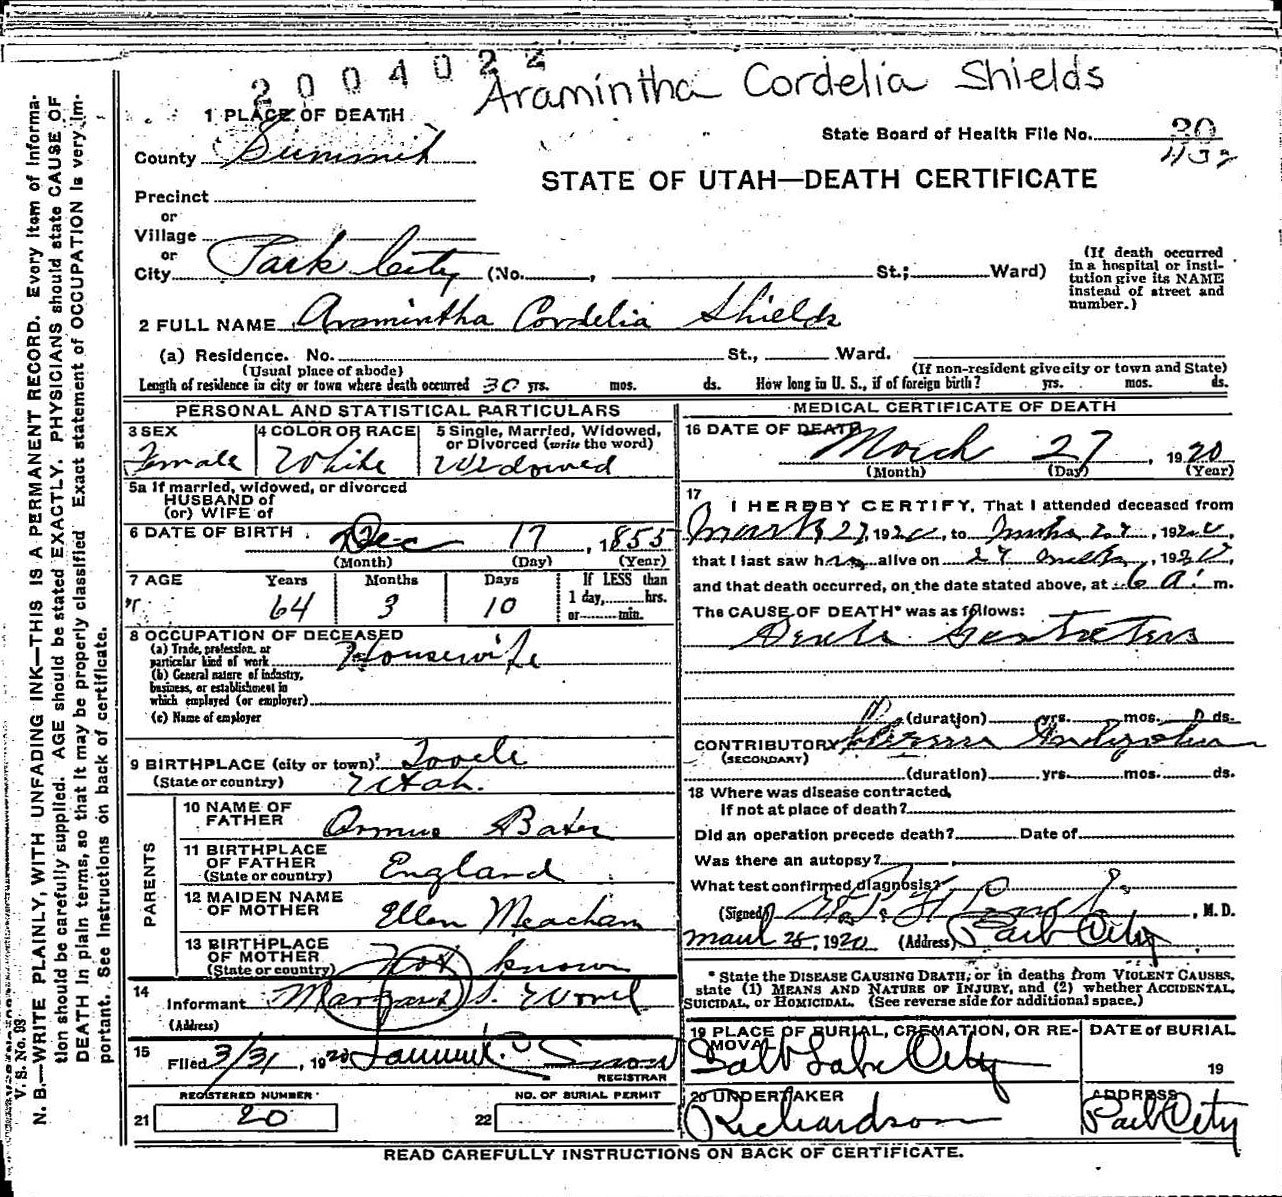 2004022
Aramintha Cordelia Shields
1 PLACE OF DEATH
State Board of Health File No. 20
County Summit
1132
STATE OF UTAH—DEATH CERTIFICATE
Precinct
or
Village
or
City Park City (No. , St.; Ward)
(If death occurred in a hospital or insti-
tution give its NAME
instead of street and
number.)
2 FULL NAME Aramintha Cordelia Shields
(a) Residence. No. St., Ward.
(Usual place of abode)
(If non-resident give city or town and State)
Length of residence in city or town where death occurred 30 yrs. mos. ds. How long in U. S., if of foreign birth? yrs. mos. ds.
PERSONAL AND STATISTICAL PARTICULARS
3 SEX
Female
4 COLOR OR RACE
White
5 Single, Married, Widowed,
or Divorced (write the word)
Widowed
5a If married, widowed, or divorced
HUSBAND of
(or) WIFE of
6 DATE OF BIRTH Dec 17, 1855
(Month) (Day) (Year)
7 AGE Years Months Days If LESS than
64 3 10 1 day, hrs.
or min.
8 OCCUPATION OF DECEASED
(a) Trade, profession, or
particular kind of work Housewife
(b) General nature of industry,
business, or establishment in
which employed (or employer)
(c) Name of employer
9 BIRTHPLACE (city or town) Tooele
(State or country) Utah.
PARENTS
10 NAME OF
FATHER Ormus Bates
11 BIRTHPLACE
OF FATHER
(State or country) England
12 MAIDEN NAME
OF MOTHER Ellen Meacham
13 BIRTHPLACE
OF MOTHER
(State or country) Not known
14
Informant Margaret S.
(Address)
15
Filed 3/31, 1920 Snow
REGISTRAR
REGISTERED NUMBER
21 20
NO. OF BURIAL PERMIT
22
MEDICAL CERTIFICATE OF DEATH
16 DATE OF DEATH March 27, 1920
(Month) (Day) (Year)
17
I HEREBY CERTIFY, That I attended deceased from
March 27, 1920, to March 27, 1920,
that I last saw her alive on 27 March, 1920,
and that death occurred, on the date stated above, at 6 a. m.
The CAUSE OF DEATH* was as follows:
(duration) yrs. mos. ds.
CONTRIBUTORY
(SECONDARY)
(duration) yrs. mos. ds.
18 Where was disease contracted,
if not at place of death?
Did an operation precede death? Date of
Was there an autopsy?
What test confirmed diagnosis?
(Signed) , M.D.
, 1920 (Address) Park City
* State the DISEASE CAUSING DEATH, or in deaths from VIOLENT CAUSES,
state (1) MEANS AND NATURE OF INJURY, and (2) whether ACCIDENTAL,
SUICIDAL, or HOMICIDAL. (See reverse side for additional space.)
19 PLACE OF BURIAL, CREMATION, OR RE-
MOVAL
Salt Lake City
DATE of BURIAL
19
20 UNDERTAKER
Richardson
ADDRESS
Park City
READ CAREFULLY INSTRUCTIONS ON BACK OF CERTIFICATE.
V. S. No. 93
N. B.—WRITE PLAINLY, WITH UNFADING INK—THIS IS A PERMANENT RECORD. Every item of informa-
tion should be carefully supplied. AGE should be stated EXACTLY. PHYSICIANS should state CAUSE OF
DEATH in plain terms, so that it may be properly classified. Exact statement of OCCUPATION is very im-
portant. See instructions on back of certificate.